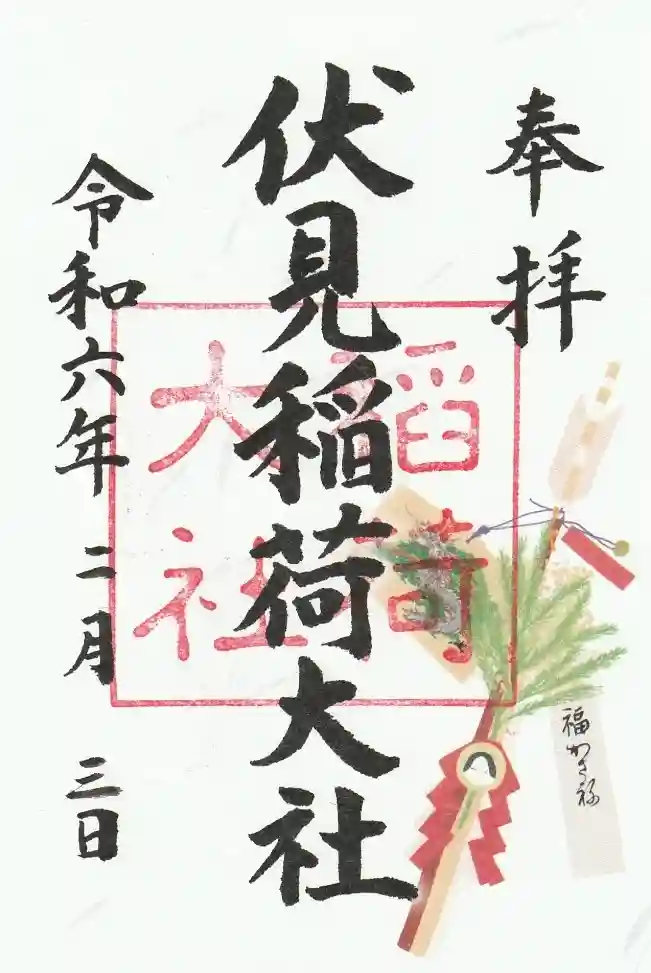 奉拝
伏見稲荷大社
稲荷
大社
令和六年二月三日
福かさね